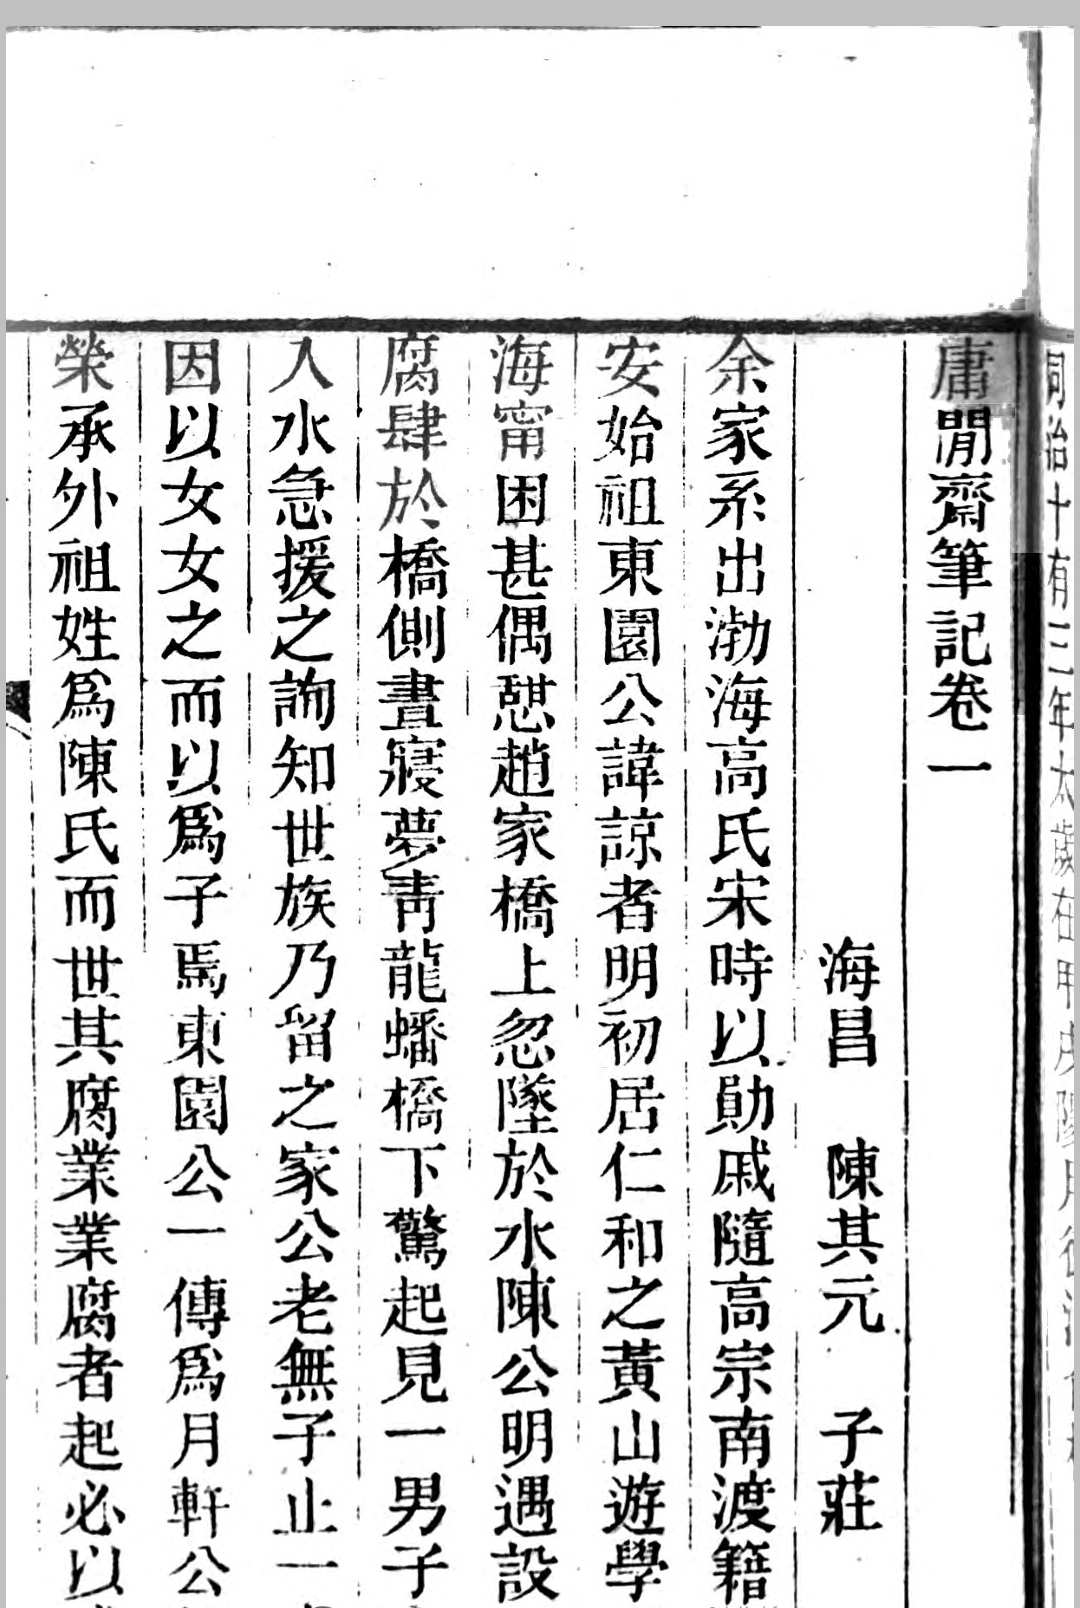 同治十有三年太歲在甲戌
庸閒齋筆記卷一
海昌 陳其元 子莊
余家系出渤海高氏宋時以勛戚隨高宗南渡籍
安始祖東園公諱諒者明初居仁和之黃山遊學
海甯困甚偶憇趙家橋上忽墜於水陳公明遇設
腐肆於橋側晝寢夢靑龍蟠橋下驚起見一男子
入水急援之詢知世族乃留之家公老無子止一
因以女女之而以爲子焉東園公一傳爲月軒公
榮承外祖姓爲陳氏而世其腐業業腐者起必以